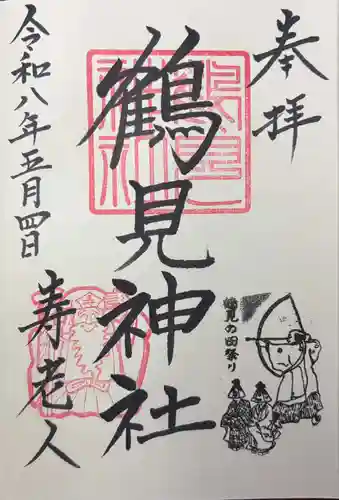 奉拝
鶴見神社
鶴見の田祭り
令和八年五月四日
寿老人